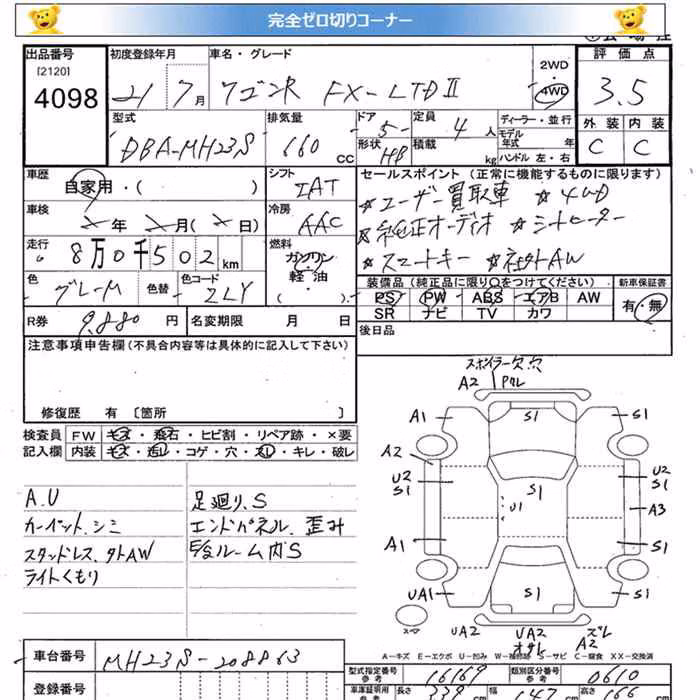 完全ゼロ切りコーナー
出品番号 初度登録年月 車名・グレード 2WD 評価点
[2120] 4WD
4098 21 7月 ワゴンR FX-LTDⅡ 3.5
型式 排気量 ドア 定員 ディーラー・並行 外装 内装
DBA-MH23S 660 CC 5 4 人 モデル年式 年 C C
形状 HB 積載 kg ハンドル 左・右
車歴 シフト セールスポイント(正常に機能するものに限ります)
自家用・( ) IAT ☆ユーザー買取車 ☆4WD
車検 冷房 ☆純正オーディオ ☆シートヒーター
年 月( 日) AAC ☆スマートキー ☆社外AW
走行 燃料
8万0千502km ガソリン
軽油
( )
色 色替 色コード 装備品(純正品に限り○をつけてください) 新車保証書
グレーM ZLY PS PW ABS エアB AW 有・無
R券 9.880 円 名変期限 月 日 SR ナビ TV カワ
注意事項申告欄(不具合内容等は具体的に記入して下さい) 後日品
修復歴 有 〔箇所 〕
検査員 FW キズ・飛石・ヒビ割・リペア跡・×要
記入欄 内装 キズ・汚レ・コゲ・穴・スレ・キレ・破レ
スポイラー欠穴
A2 Pクレ
A1 S1 S1
A2
U2 U2
S1 S1 S1
U1 A3
A1 S1
UA1 S1 S1
スペア UA2 UA2 ズレ
オサレ A2
A.U 足廻り.S
カーペット.シミ エンドパネル.歪み
スタッドレス.外AW 後ルーム内S
ライトくもり
A-キズ E-エクボ U-凹み W-補修跡 S-サビ C-腐食 XX-交換済
車台番号 MH23S-208863
型式指定番号 参考 16169 類別区分番号 参考 0610
登録番号 車庫証明用 参考 長さ 339 cm 幅 147 cm 高さ 166 cm